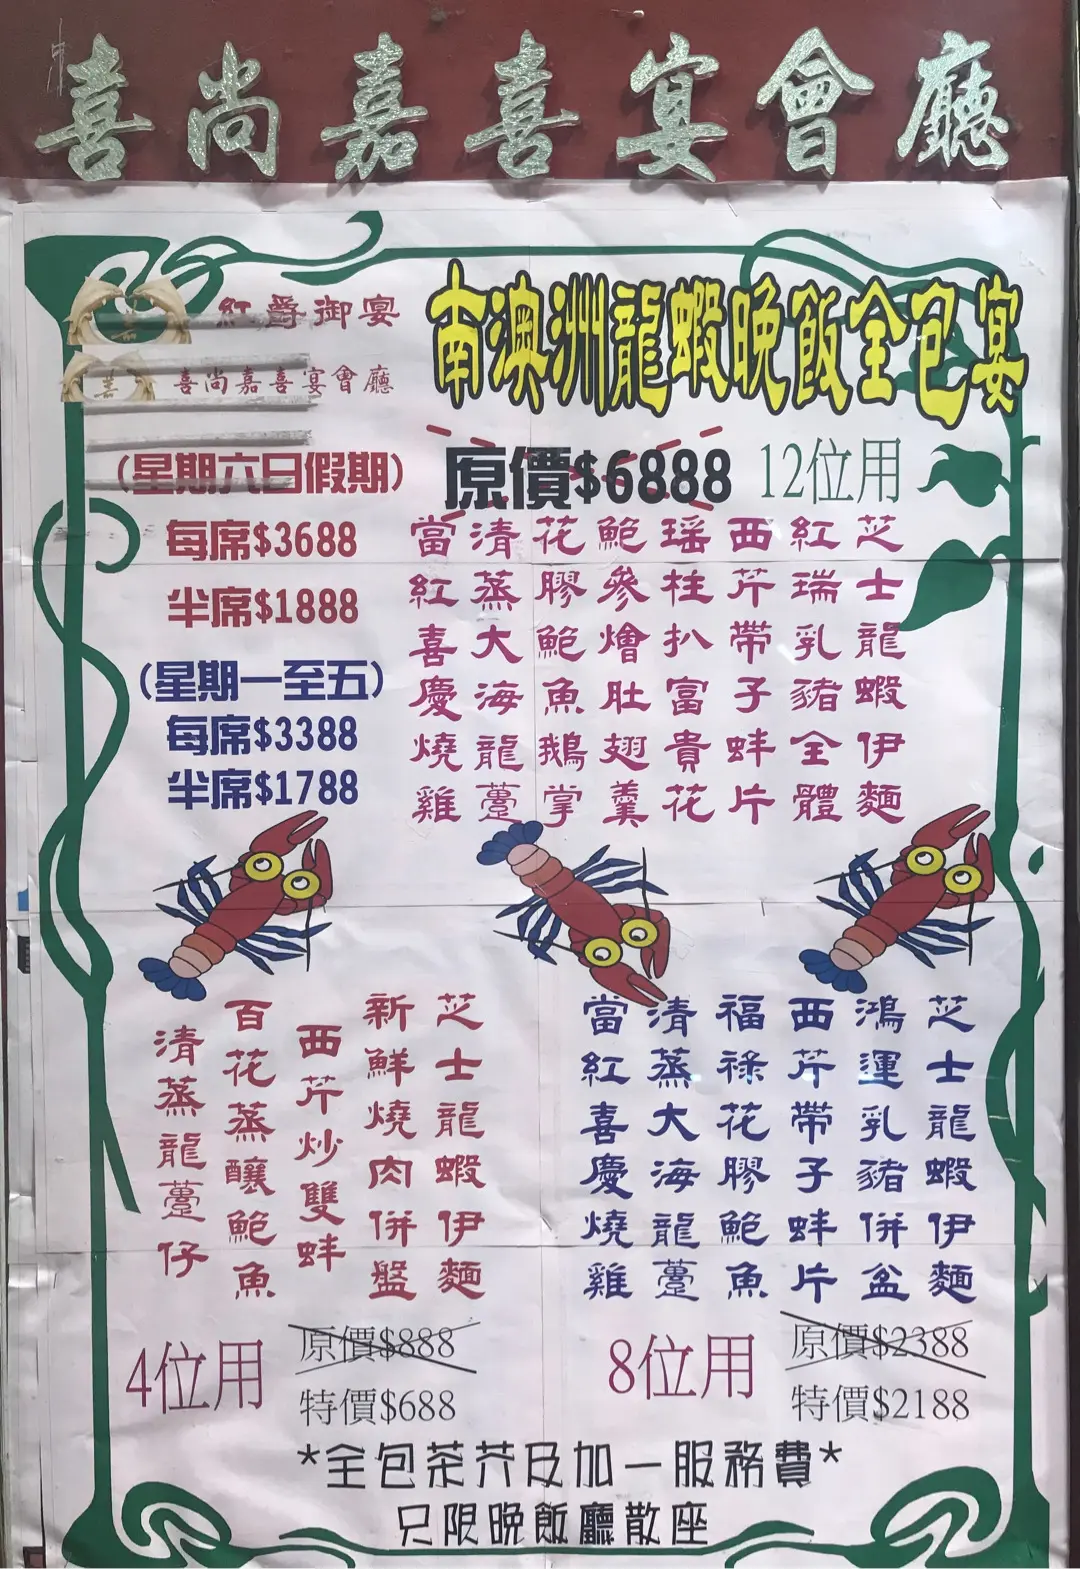 喜尚嘉喜宴會廳
紅爵御宴
喜尚嘉喜宴會廳
南澳洲龍蝦晚飯全包宴
(星期六日假期)
每席$3688
半席$1888
(星期一至五)
每席$3388
半席$1788
原價$6888
12位用
芝士龍蝦伊麵
紅瑞乳豬全體
西芹帶子蚌片
瑶柱扒富貴花
鮑參燴肚翅羹
花膠鮑魚鵝掌
清蒸大海龍躉
當紅喜慶燒雞
芝士龍蝦伊麵
新鮮燒肉併盤
西芹炒雙蚌
百花蒸釀鮑魚
清蒸龍躉仔
4位用
原價$888
特價$688
芝士龍蝦伊麵
鴻運乳豬併盆
西芹帶子蚌片
福祿花膠鮑魚
清蒸大海龍躉
當紅喜慶燒雞
8位用
原價$2388
特價$2188
*全包茶芥及加一服務費*
只限晚飯廳散座